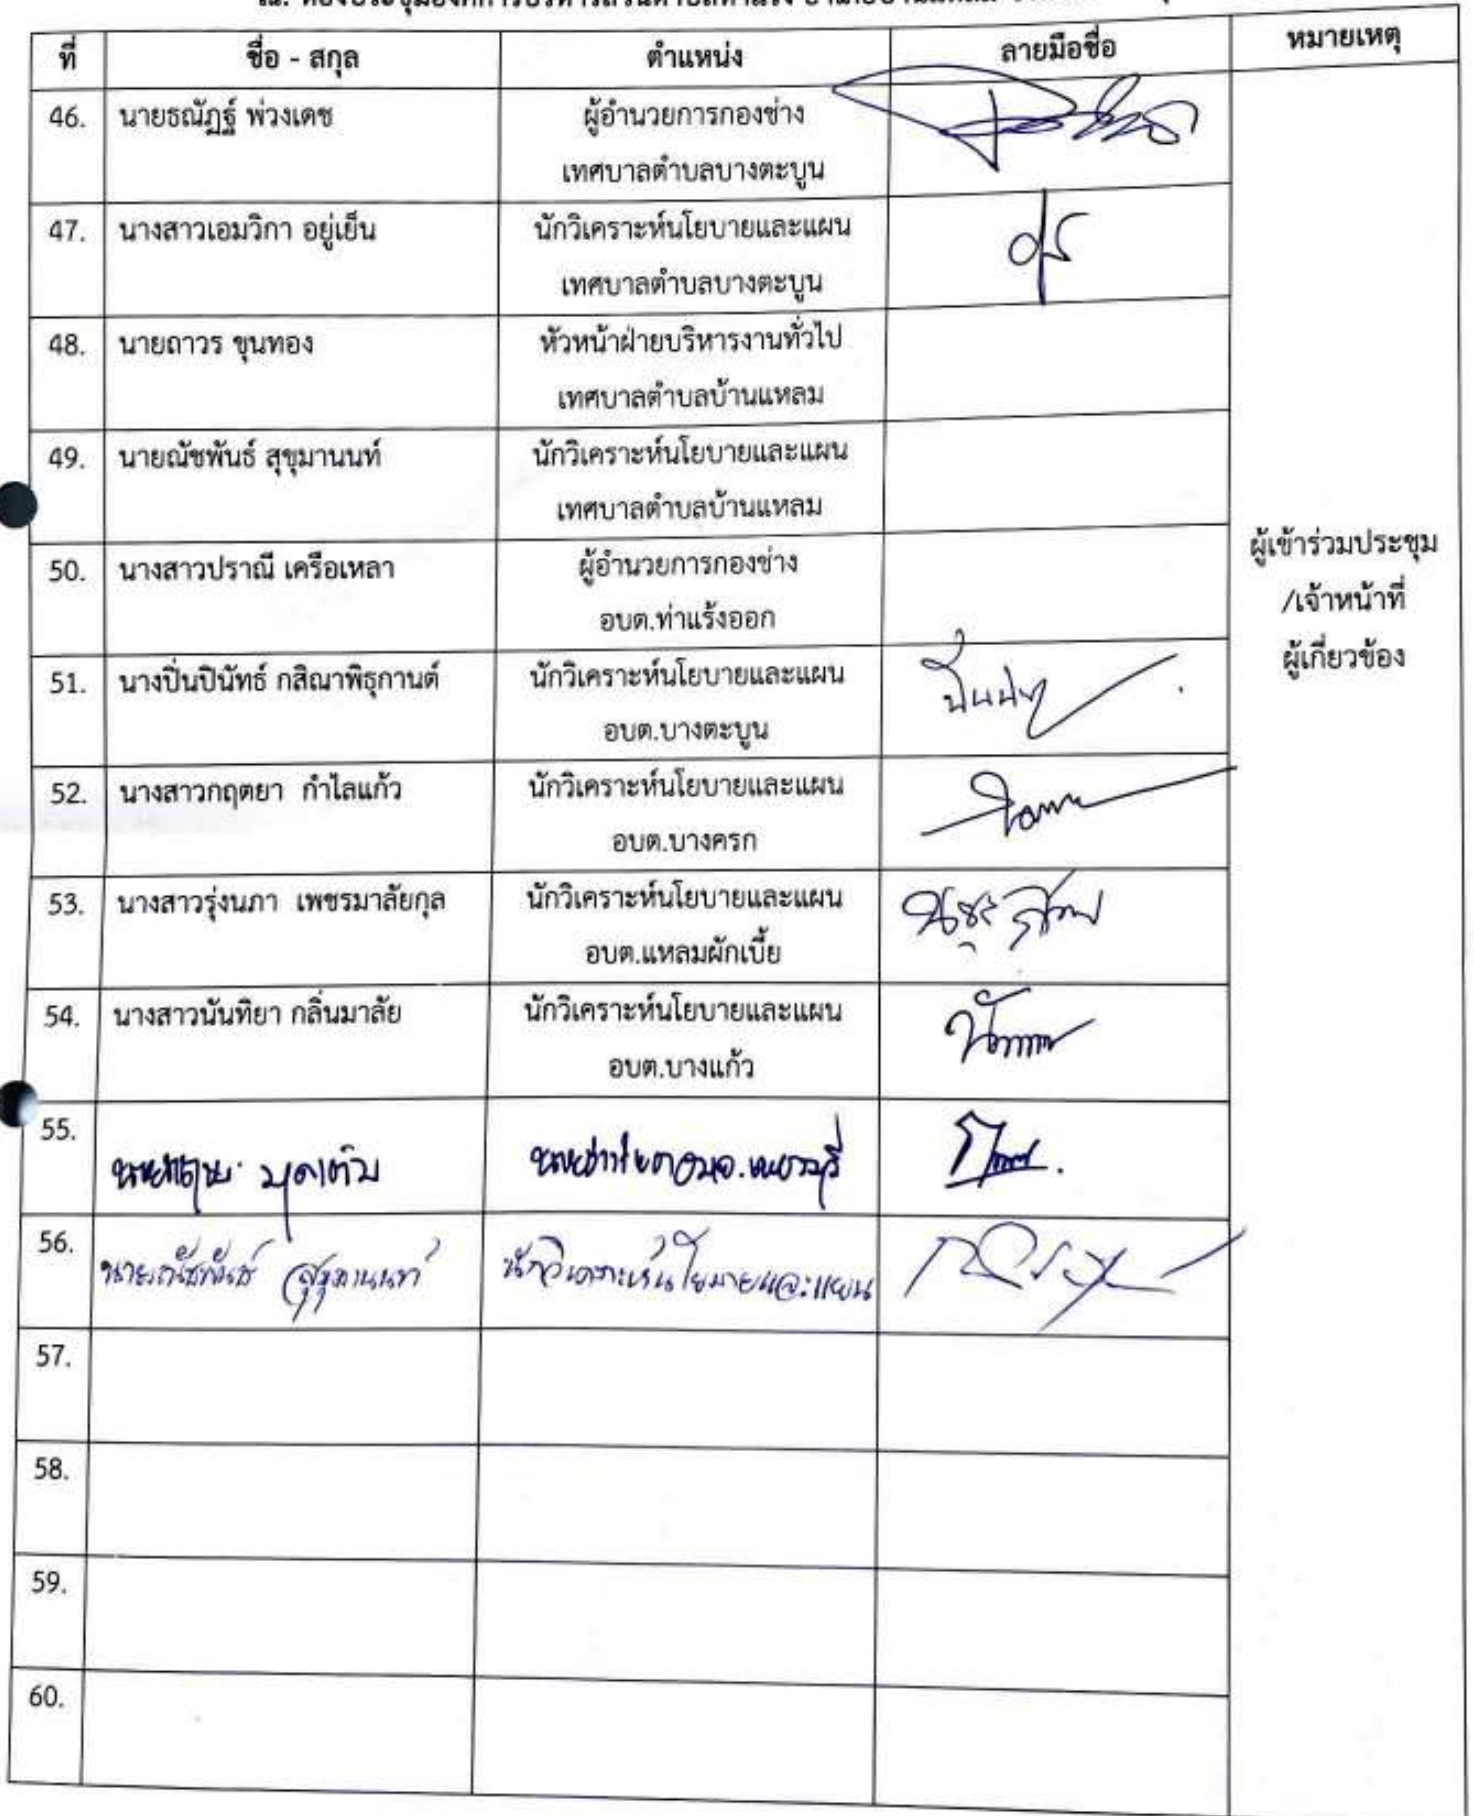 ที่ ชื่อ - สกุล ตำแหน่ง ลายมือชื่อ หมายเหตุ
46. นายธณัฏฐ์ พ่วงเดช ผู้อำนวยการกองช่าง
เทศบาลตำบลบางตะบูน
47. นางสาวเอมวิกา อยู่เย็น นักวิเคราะห์นโยบายและแผน
เทศบาลตำบลบางตะบูน
48. นายถาวร ขุนทอง หัวหน้าฝ่ายบริหารงานทั่วไป
เทศบาลตำบลบ้านแหลม
49. นายณัชพันธ์ สุขุมานนท์ นักวิเคราะห์นโยบายและแผน
เทศบาลตำบลบ้านแหลม
50. นางสาวปราณี เครือเหลา ผู้อำนวยการกองช่าง
อบต.ท่าแร้งออก
ผู้เข้าร่วมประชุม
/เจ้าหน้าที่
ผู้เกี่ยวข้อง
51. นางปิ่นปินัทธ์ กสิณาพิธุกานต์ นักวิเคราะห์นโยบายและแผน
อบต.บางตะบูน
52. นางสาวกฤตยา กำไลแก้ว นักวิเคราะห์นโยบายและแผน
อบต.บางครก
53. นางสาวรุ่งนภา เพชรมาลัยกุล นักวิเคราะห์นโยบายและแผน
อบต.แหลมผักเบี้ย
54. นางสาวนันทิยา กลิ่นมาลัย นักวิเคราะห์นโยบายและแผน
อบต.บางแก้ว
55.
56. นายณัชพันธ์ สุขุมานนท์ นักวิเคราะห์นโยบายและแผน
57.
58.
59.
60.